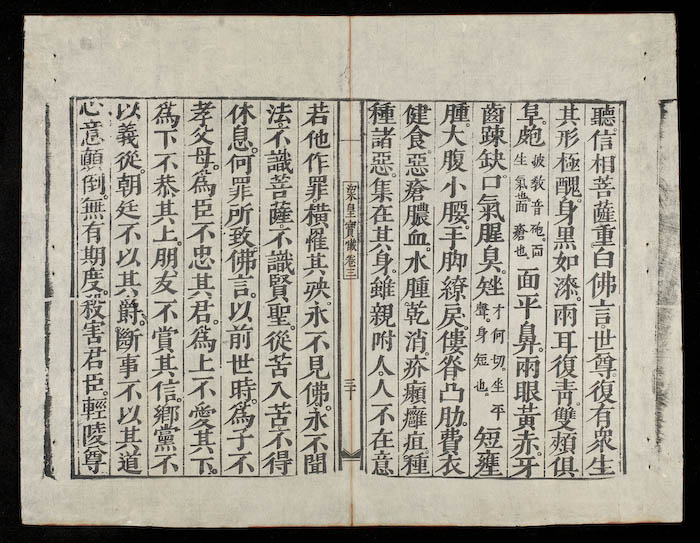 聽信相菩薩重白佛言。世尊。復有衆生
其形極醜。身黑如漆。兩耳復靑。雙頰俱
阜。皰披敎音砲。面生氣也面瘡也。面平鼻。兩眼黃赤。牙
齒踈缺。口氣腥臭。矬才何切。坐平聲。身短也。短壅
腫。大腹小腰。手脚繚戾。僂脊凸肋。費衣
健食。惡瘡膿血。水腫乾消。疥癩癰疽。種
種諸惡。集在其身。雖親咐人。人不在意
梁皇寶懺卷三
三十
若他作罪。橫罹其殃。永不見佛。永不聞
法。不識菩薩。不識賢聖。從苦入苦。不得
休息。何罪所致。佛言。以前世時。爲子不
孝父母。爲臣不忠其君。爲上不愛其下。
爲下不恭其上。朋友不賞其信。鄉黨不
以義從。朝廷不以其爵。斷事不以其道
心意顚倒。無有期度。殺害君臣。輕陵尊